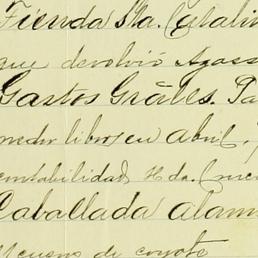 Tienda Sta. Catalin
que devolvió Agass
Gastos Gráles. Pa
medr libros en Abril,
contabilidad Hda.
Caballada alam
cueros de coyote